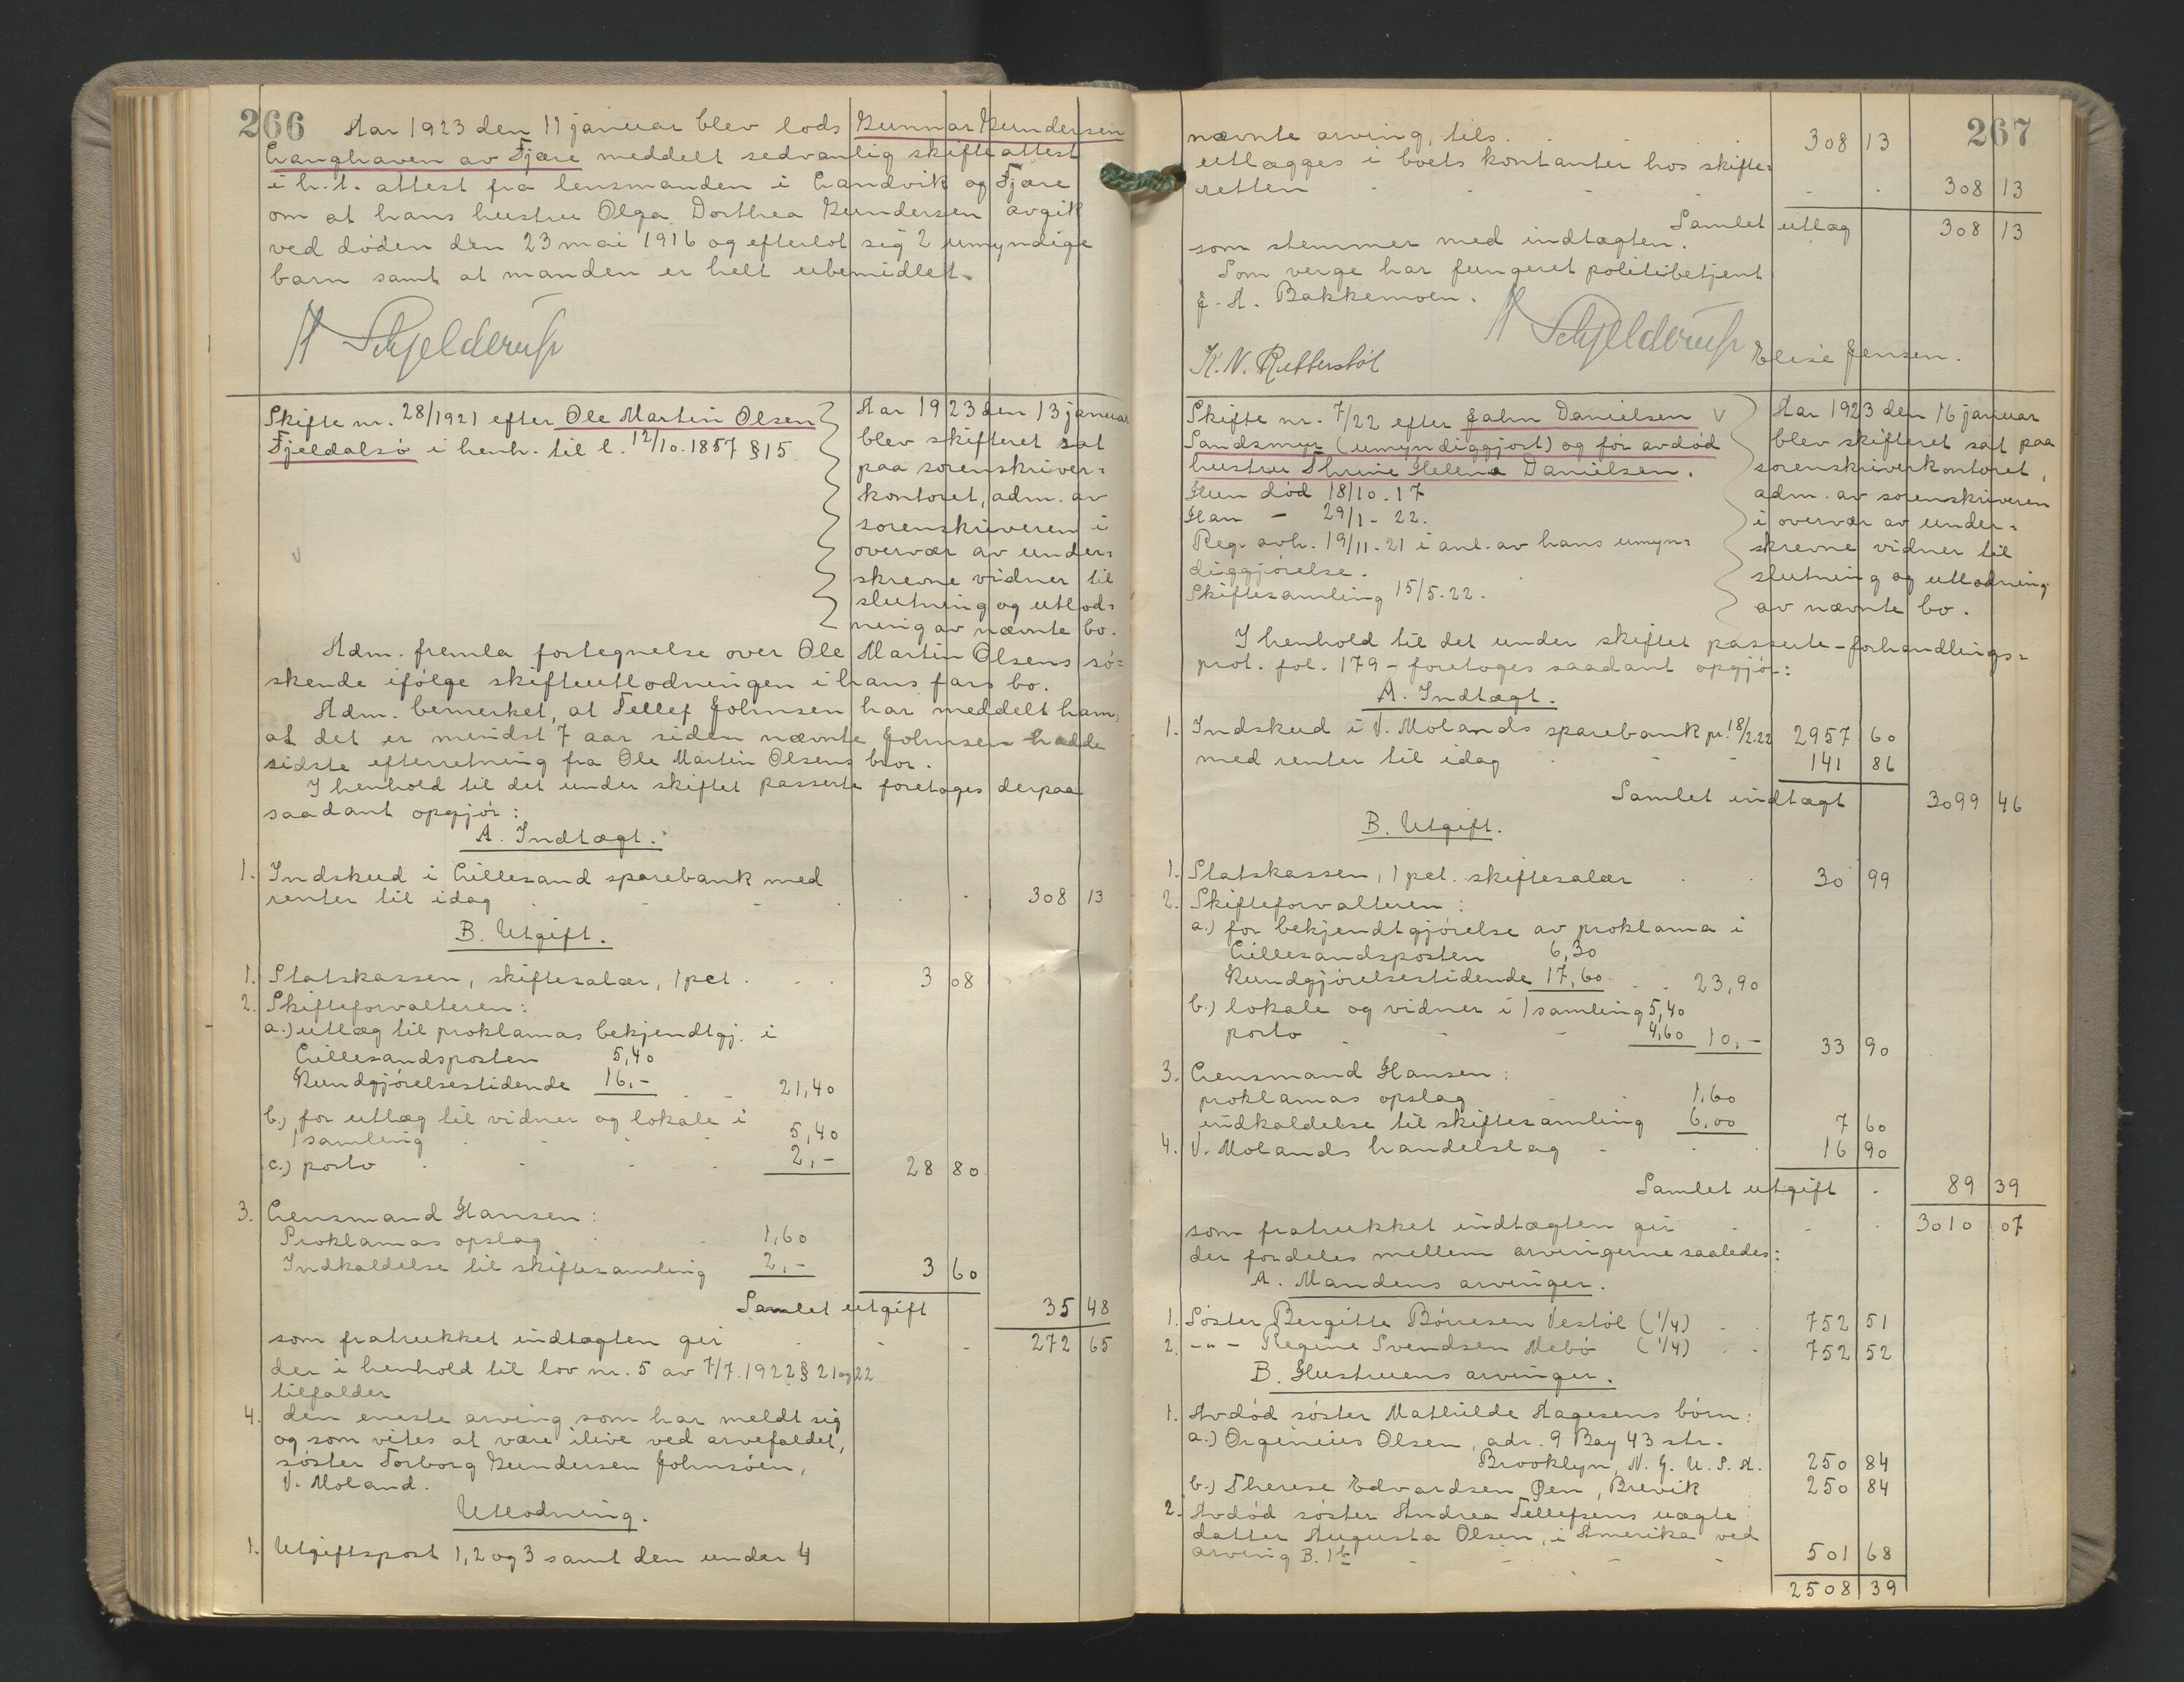 266
Aar 1923 den 11 januar blev lods Gunnar Gundersen
Langhaven av Fjære meddelt sedvanlig skifteattest
i h.t. attest fra lensmanden i Landvik og Fjære
om at hans hustru Olga Dorthea Gundersen avgik
ved døden den 23 mai 1916 og efterlot sig 2 umyndige
barn samt at manden er helt ubemidlet.
H Schjelderup
Skifte nr. 28/1921 efter Ole Martin Olsen
Fjeldalsø i henh. til l. 12/10.1857 §15
Aar 1923 den 13 januar
blev skifteret sat
paa sorenskriver=
kontoret, adm. av
sorenskriveren i
overvær av under=
skrevne vidner til
slutning og utlod=
ning av nævnte bo.
Adm. fremla fortegnelse over Ole Martin Olsens sø=
skende ifølge skifteutlodningen i hans fars bo.
Adm. bemerket, at Tellef Johnsen har meddelt ham,
at det er mindst 7 aar siden nævnte Johnsen hadde
sidste efterretning fra Ole Martin Olsens bror.
I henhold til det under skiftet passerte foretoges derpaa
saadant opgjør:
A. Indtægt.
1. Indskud i Lillesand sparebank med
renter til idag 308 13
B. Utgift.
1. Statskassen, skiftesalær, 1 pct. 3 08
2. Skifteforvalteren:
a.) utlæg til proklamas bekjendtgj. i
Lillesandsposten 5,40
Kundgjørelsestidende 16,- 21,40
b.) for utlæg til vidner og lokale i
1 samling 5,40
c.) porto 2,- 28 80
3. Lensmand Hansen:
Proklamas opslag 1,60
Indkaldelse til skiftesamling 2,- 3 60
Samlet utgift 35 48
som fratrukket indtægten gir 272 65
der i henhold til lov nr. 5 av 7/7.1922 § 21 og 22
tilfalder
4. den eneste arving som har meldt sig
og som vites at være ilive ved arvefaldet,
søster Torborg Gundersen Johnsøen,
V. Moland.
Utlodning.
1. Utgiftspost 1, 2 og 3 samt den under 4
267
nævnte arving, tils. 308 13
utlægges i boets kontanter hos skifte=
retten 308 13
Samlet utlæg 308 13
som stemmer med indtægten.
Som verge har fungeret politibetjent
J. A. Bakkemoen.
H Schjelderup
K. N. Retterstøl Elise Jensen.
Skifte nr. 7/22 efter Jahn Danielsen V
Sandsmyr (umyndiggjort) og før avdød
hustru Thrine Helena Danielsen.
Hun død 18/10-17
Han - 29/1-22.
Reg. avh. 19/11-21 i anl. av hans umyn=
diggjørelse.
Skiftesamling 15/5-22.
Aar 1923 den 16 januar
blev skifteret sat paa
sorenskriverkontoret,
adm. av sorenskriveren
i overvær av under=
skrevne vidner til
slutning og utlodning
av nævnte bo.
I henhold til det under skiftet passerte - forhandlings=
prot. fol. 179 - foretoges saadant opgjør:
A. Indtægt.
1. Indskud i V. Molands sparebank pr. 18/2.22 2957 60
med renter til idag 141 86
Samlet indtægt 3099 46
B. Utgift.
1. Statskassen, 1 pct. skiftesalær 30 99
2. Skifteforvalteren:
a.) for bekjendtgjørelse av proklama i
Lillesandsposten 6,30
Kundgjørelsestidende 17,60 23,90
b.) lokale og vidner i 1 samling 5,40
porto 4,60 10,- 33 90
3. Lensmand Hansen:
proklamas opslag 1,60
indkaldelse til skiftesamling 6,00 7 60
4. V. Molands handelslag 16 90
Samlet utgift 89 39
som fratrukket indtægten gir 3010 07
der fordeles mellem arvingerne saaledes:
A. Mandens arvinger.
1. Søster Bergitte Børresen Vestøl (1/4) 752 51
2. -"- Regine Svendsen Mebø (1/4) 752 52
B. Hustruens arvinger.
1. Avdød søster Mathilde Aagesens børn:
a.) Orginius Olsen, adr. 9 Bay 43 str.
Brooklyn, N. J. U. S. A. 250 84
b.) Therese Edvardsen Øen, Brevik 250 84
2. Avdød søster Andrea Tellefsens uægte
datter Augusta Olsen, i Amerika ved
arving B. 1 b 501 68
2508 39